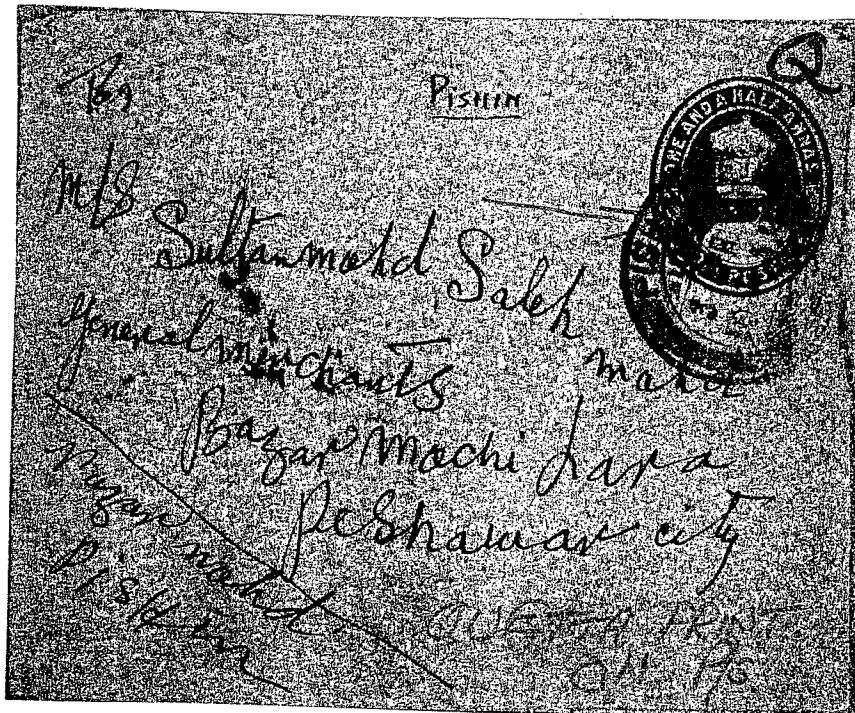 To,
Pishin
Q
ONE AND A HALF ANNAS
M/S
Sultanmohd, Saleh mohd
General merchants
Bazar Mochi Lara
Peshawar city
mohd
Pishin
QUETTA PRINT.
ON P/S